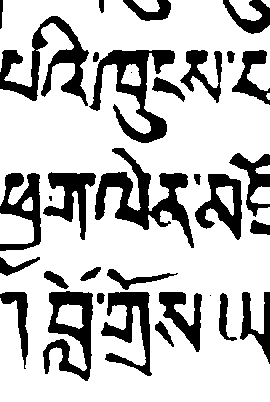 པའི་ཁུངས་
ཕྱག་ལེན་མཛ
བློ་གྲོས་ཡ